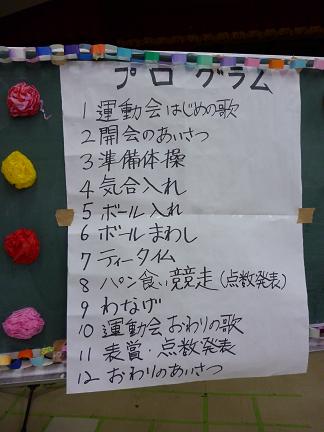 プログラム
1 運動会はじめの歌
2 開会のあいさつ
3 準備体操
4 気合入れ
5 ボール入れ
6 ボールまわし
7 ティータイム
8 パン食い競走(点数発表)
9 わなげ
10 運動会おわりの歌
11 表賞・点数発表
12 おわりのあいさつ